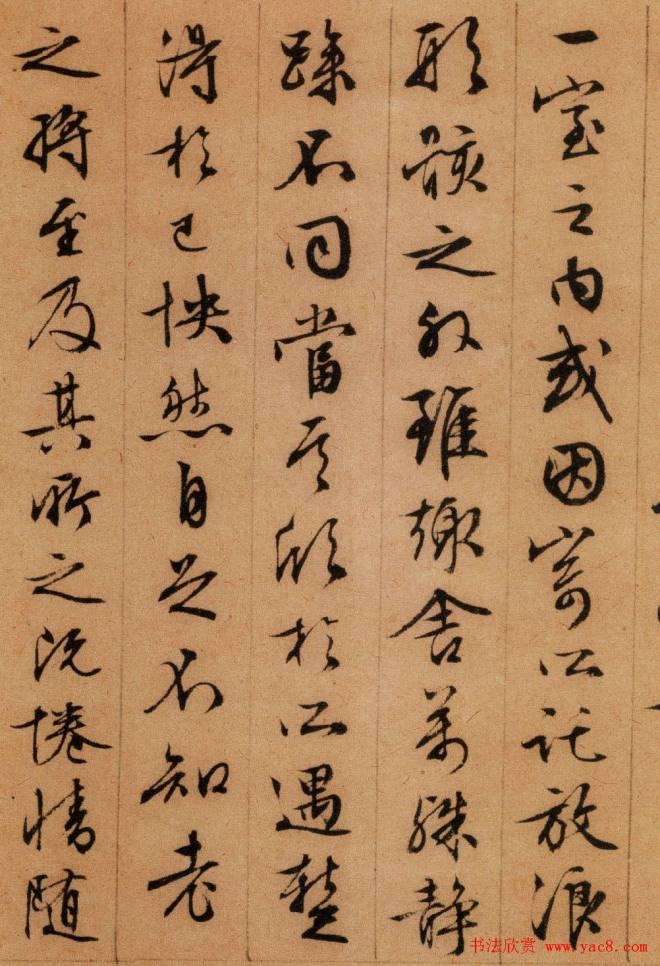 一室之内或因寄所託放浪
形骸之外雖趣舍萬殊静
躁不同當其欣於所遇蹔
得於己怏然自足不知老
之將至及其所之既惓情随
书法欣赏 www.yac8.com